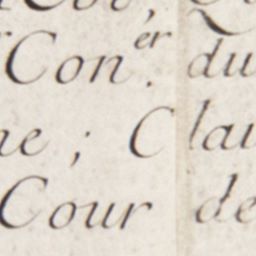 Con.ér du
ne ; Clau
Cour de